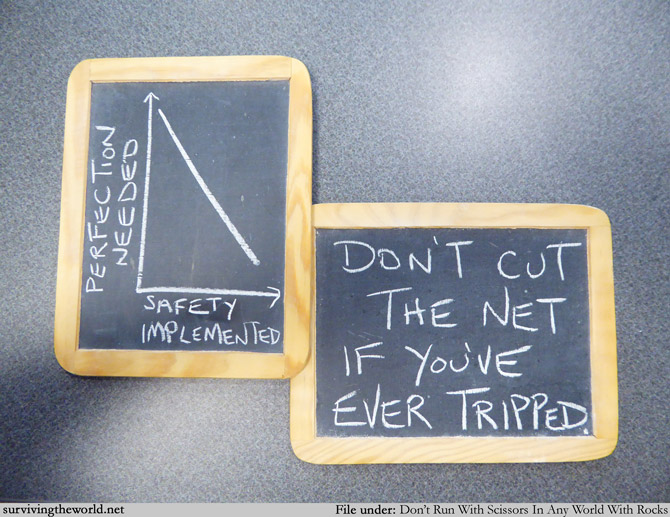 PERFECTION
NEEDED
SAFETY
IMPLEMENTED
DON'T CUT
THE NET
IF YOU'VE
EVER TRIPPED.
survivingtheworld.net
File under: Don't Run With Scissors In Any World With Rocks